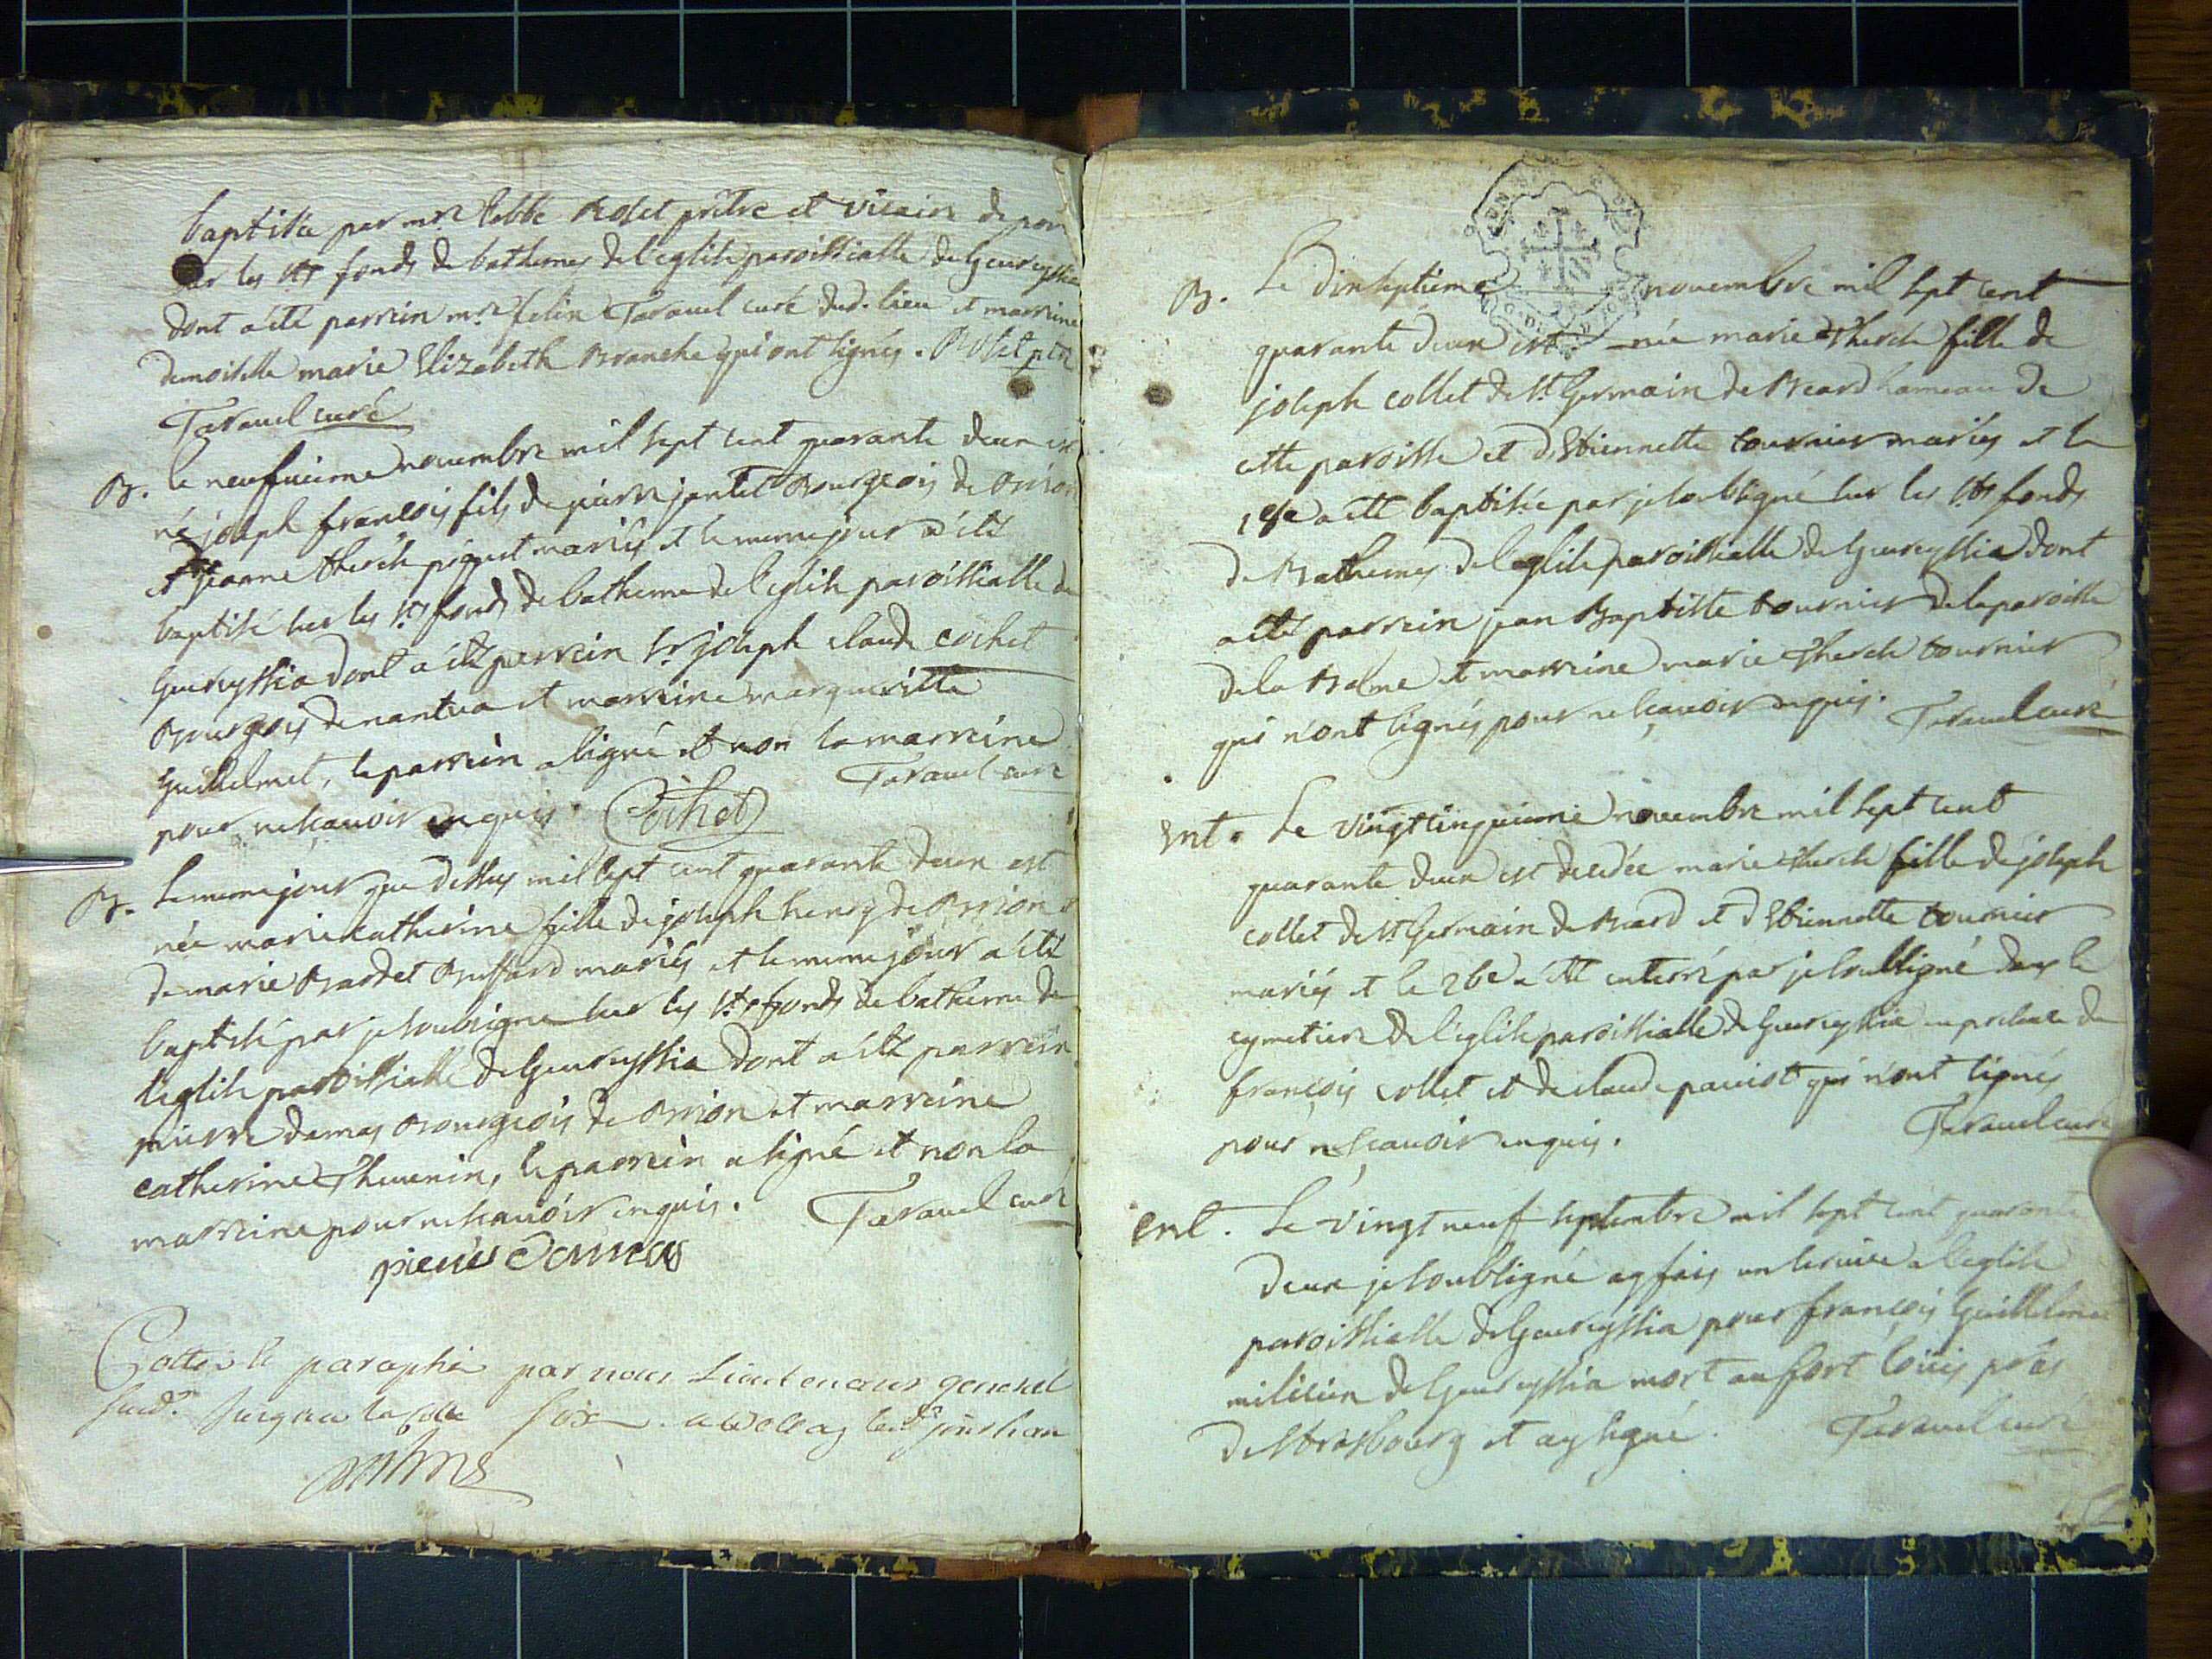 baptisée par mre l'abbé Rolet prêtre et vicaire de
sur les sts fonds de bathemes de l'eglise paroissialle de Geureyssia
dont a été parrein mre felix Taravel curé dud. lieu et marreine
demoiselle marie Elizabeth Branche qui ont signés. Rolet ptre
Taravel curé
B. le neufuieme novembre mil sept cent quarante deux est
né joseph françois fils de pierre jantet Bourgeois de Brion
et jeanne therese piquet mariés et le meme jour a été
baptisé sur les sts fonds de batheme de l'eglise paroissialle de
Geureyssia dont a été parrein sr joseph claude cochet
Bourgeois de nantua et marreine margueritte
Guillelmet, le parrein a signé et non la marreine
pour ne scavoir enquis. Cochet Taravel curé
B. Le meme jour que dessus mil sept cent quarante deux est
née marie catherine fille de joseph henry de Brion et
de marie Bardet Buffard mariés et le meme jour a été
baptisé par je soubsigné sur les sts fonds de batheme de
l'eglise paroissialle de Geureyssia dont a été parrein
pierre damas Bourgeois de Brion et marreine
catherine Thevenin, le parrein a signé et non la
marreine pour ne scavoir enquis. Taravel curé
pierre Damas
Cotté et paraphé par nous Lieutenant general
susd. jusqu'a la cotte six
B. Le dixseptieme novembre mil sept cent
quarante deux est née marie Therese fille de
joseph collet de St Germain de Beard hameau de
cette paroisse et d'Estiennette tournier mariés et le
18e a été baptisée par je soubsigné sur les sts fonds
de Bathemes de l'eglise paroissialle de Geureyssia dont
a été parrein jean Baptiste tournier de la paroisse
de la Balme et marreine marie Therese tournier
qui n'ont signés pour ne scavoir enquis. Taravel curé
Ent. Le vingtcinquieme novembre mil sept cent
quarante deux est decedée marie Therese fille de joseph
collet de St Germain de Beard et d'Estiennette tournier
mariés et le 26e a été enterré par je soubsigné dans le
cymetiere de l'eglise paroissialle de Geureyssia en presence de
françois collet et de claude paviot qui n'ont signés
pour ne scavoir enquis. Taravel curé
Ent. Le vingt neuf septembre mil sept cent quarante
deux je soubsigné ay fais un service a l'eglise
paroissialle de Geureyssia pour françois Guillelmet
milicien de Geureyssia mort au fort loüis près
de Strasbourg et ay signé. Taravel curé